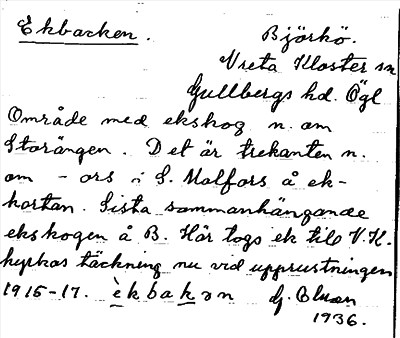 Ekbacken. Björkö.
Vreta Kloster sn
Gullbergs hd. Ögl
Område med ekskog n. om
Storängen. Det är trekanten n.
om - ors i S. Malfors å ek-
kartan. Sista sammanhängande
ekskogen å B. Här togs ek till V. K.
kyrkas täckning nu vid upprustningen
1915-17. èkbakən G.
1936.